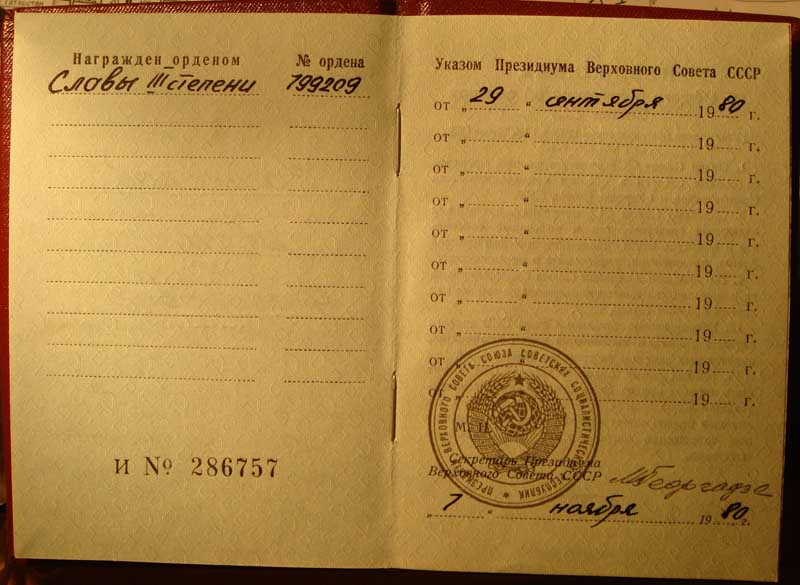 Награжден орденом № ордена
Славы III степени 799209
И № 286757
Указом Президиума Верховного Совета СССР
от „29“ сентября 1980 г.
от „ “ 19 г.
от „ “ 19 г.
от „ “ 19 г.
от „ “ 19 г.
от „ “ 19 г.
от „ “ 19 г.
от „ “ 19 г.
от „ “ 19 г.
от „ “ 19 г.
М. П.
Секретарь Президиума
Верховного Совета СССР МГеоргадзе
„7“ ноября 1980 г.